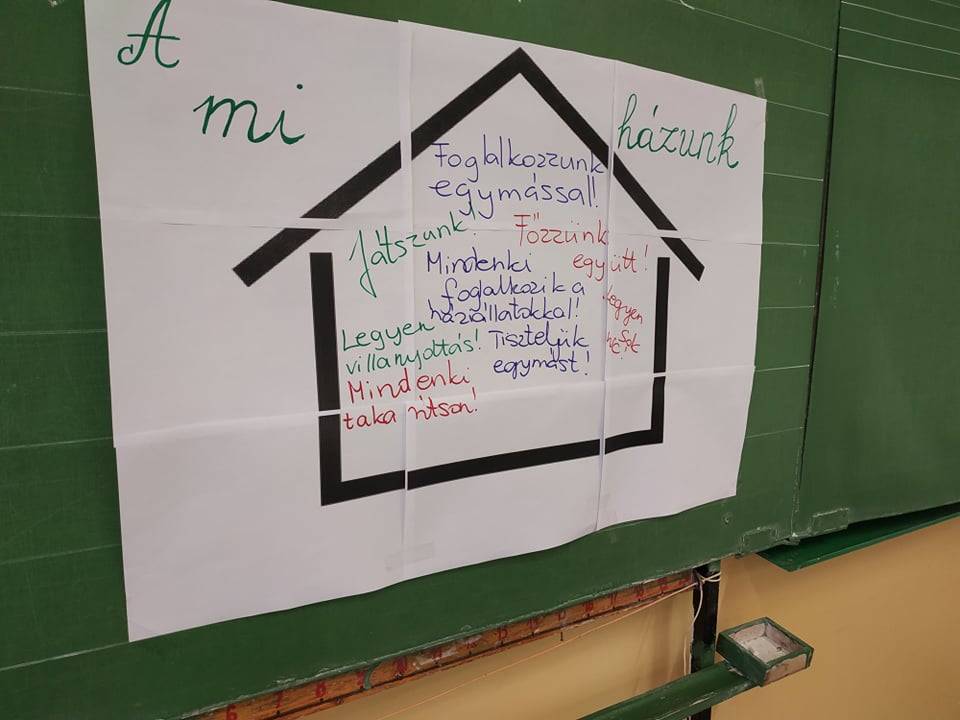 A
mi
házunk
Foglalkozzunk
egymással!
Játszunk!
Főzzünk
együtt!
Mindenki
foglalkozik a
háziállatokkal!
Legyen
villanyoltás!
Tiszteljük
egymást!
Legyen
Mindenki
taka rítson!